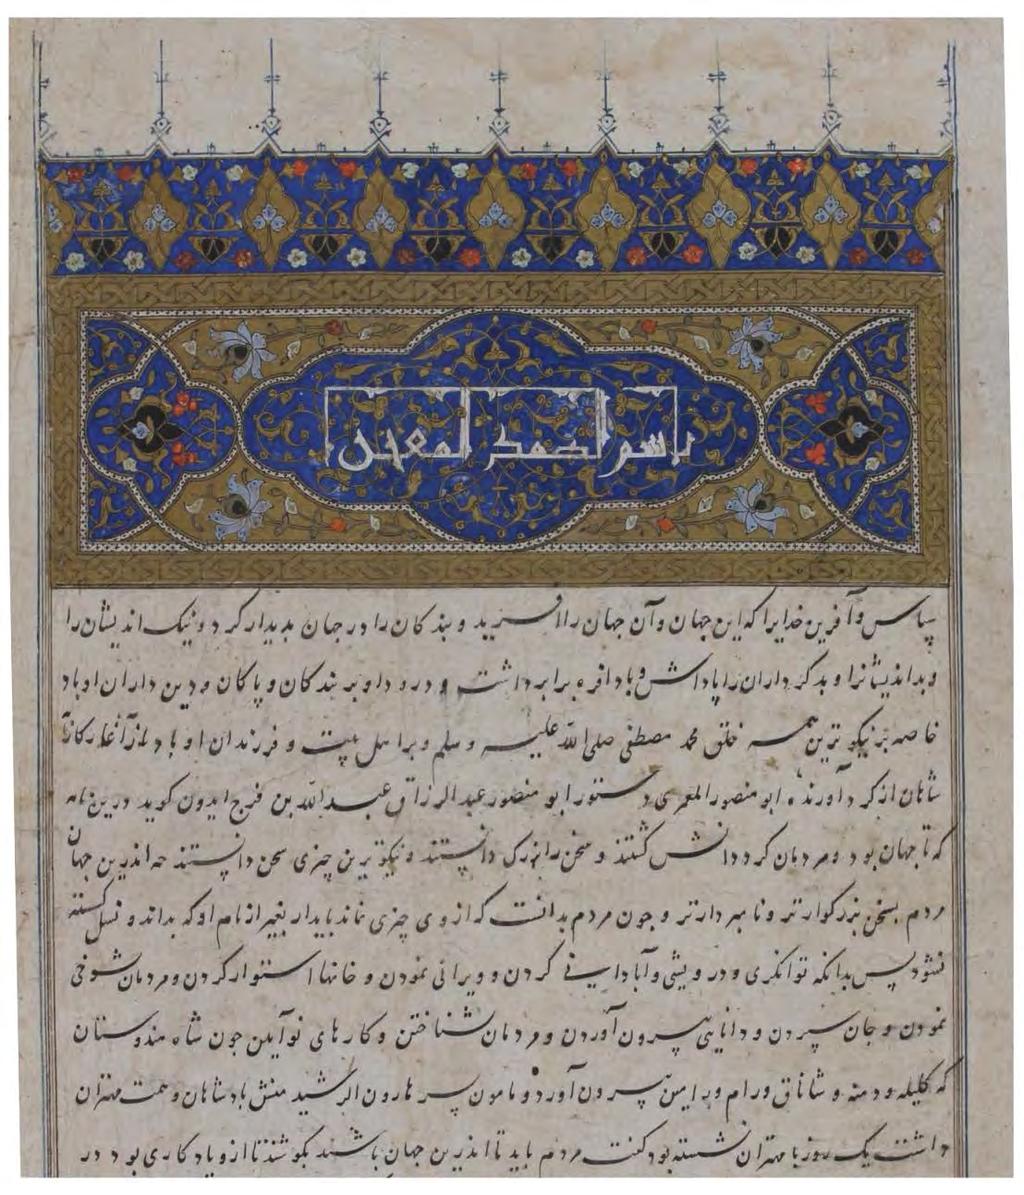 باسم الصمد المعین
سپاس و آفرین خدایرا که این جهان و آن جهان را آفرید و بندکان را در جهان پدیدار کرد و نیک اندیشان را
و بداندیشانرا و بدکرداران را پاداش و بادافره برابر داشت و درود او بر بندکان و پاکان و دین داران او باد
خاصه بر نیکوترین همه خلق محمد مصطفی صلی الله علیه و سلم و بر اهل بیت و فرزندان او باد آغاز کار
شاهان از کرد آورنده ابو منصور المعمری دستور ابو منصور عبد الرزاق عبد الله بن فرخ ایدون کوید درین نامه
که تا جهان بود و مردمان کرد دانش کشتند و سخن را بزرک دانستند و نیکوترین چیزی سخن دانستند چه اندرین جهان
مردم بسخن بزرکوارتر و نامبردارتر و چون مردم بدانست که از وی چیزی نماند پایدار بغیر از نام او که بداند و نسل کسسته
نشود پس بدانکه توانکری و درویشی و آبادانی کردن و ویرانی نمودن و خانها استوار کردن و مردمان شوخی
نمودن و جان سپردن و دانایی بیرون آوردن و مردمان شناختن و کارهای نوآیین چون شاه هندوستان
که کلیله و دمنه و شاناق و رام و رامین بیرون آورد و مامون پسر هارون الرشید منش پادشاهان و همت مهتران
داشت یک روز با مهتران نشسته بود کفت مردم باید تا اندرین جهان باشند بکوشند تا ازو یادکاری بود در